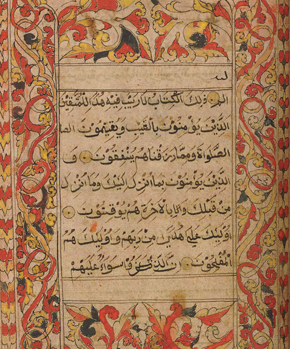 الم ذلك الكتاب لا ريب فيه هدى للمتقين
الذين يؤمنون بالغيب ويقيمون
الصلوة ومما رزقناهم ينفقون و
الذين يؤمنون بما انزل اليك وما انزل
من قبلك وبالاخرة هم يوقنون
اوليك على هدى من ربهم واوليك هم
المفلحون ان الذين كفروا سواء عليهم